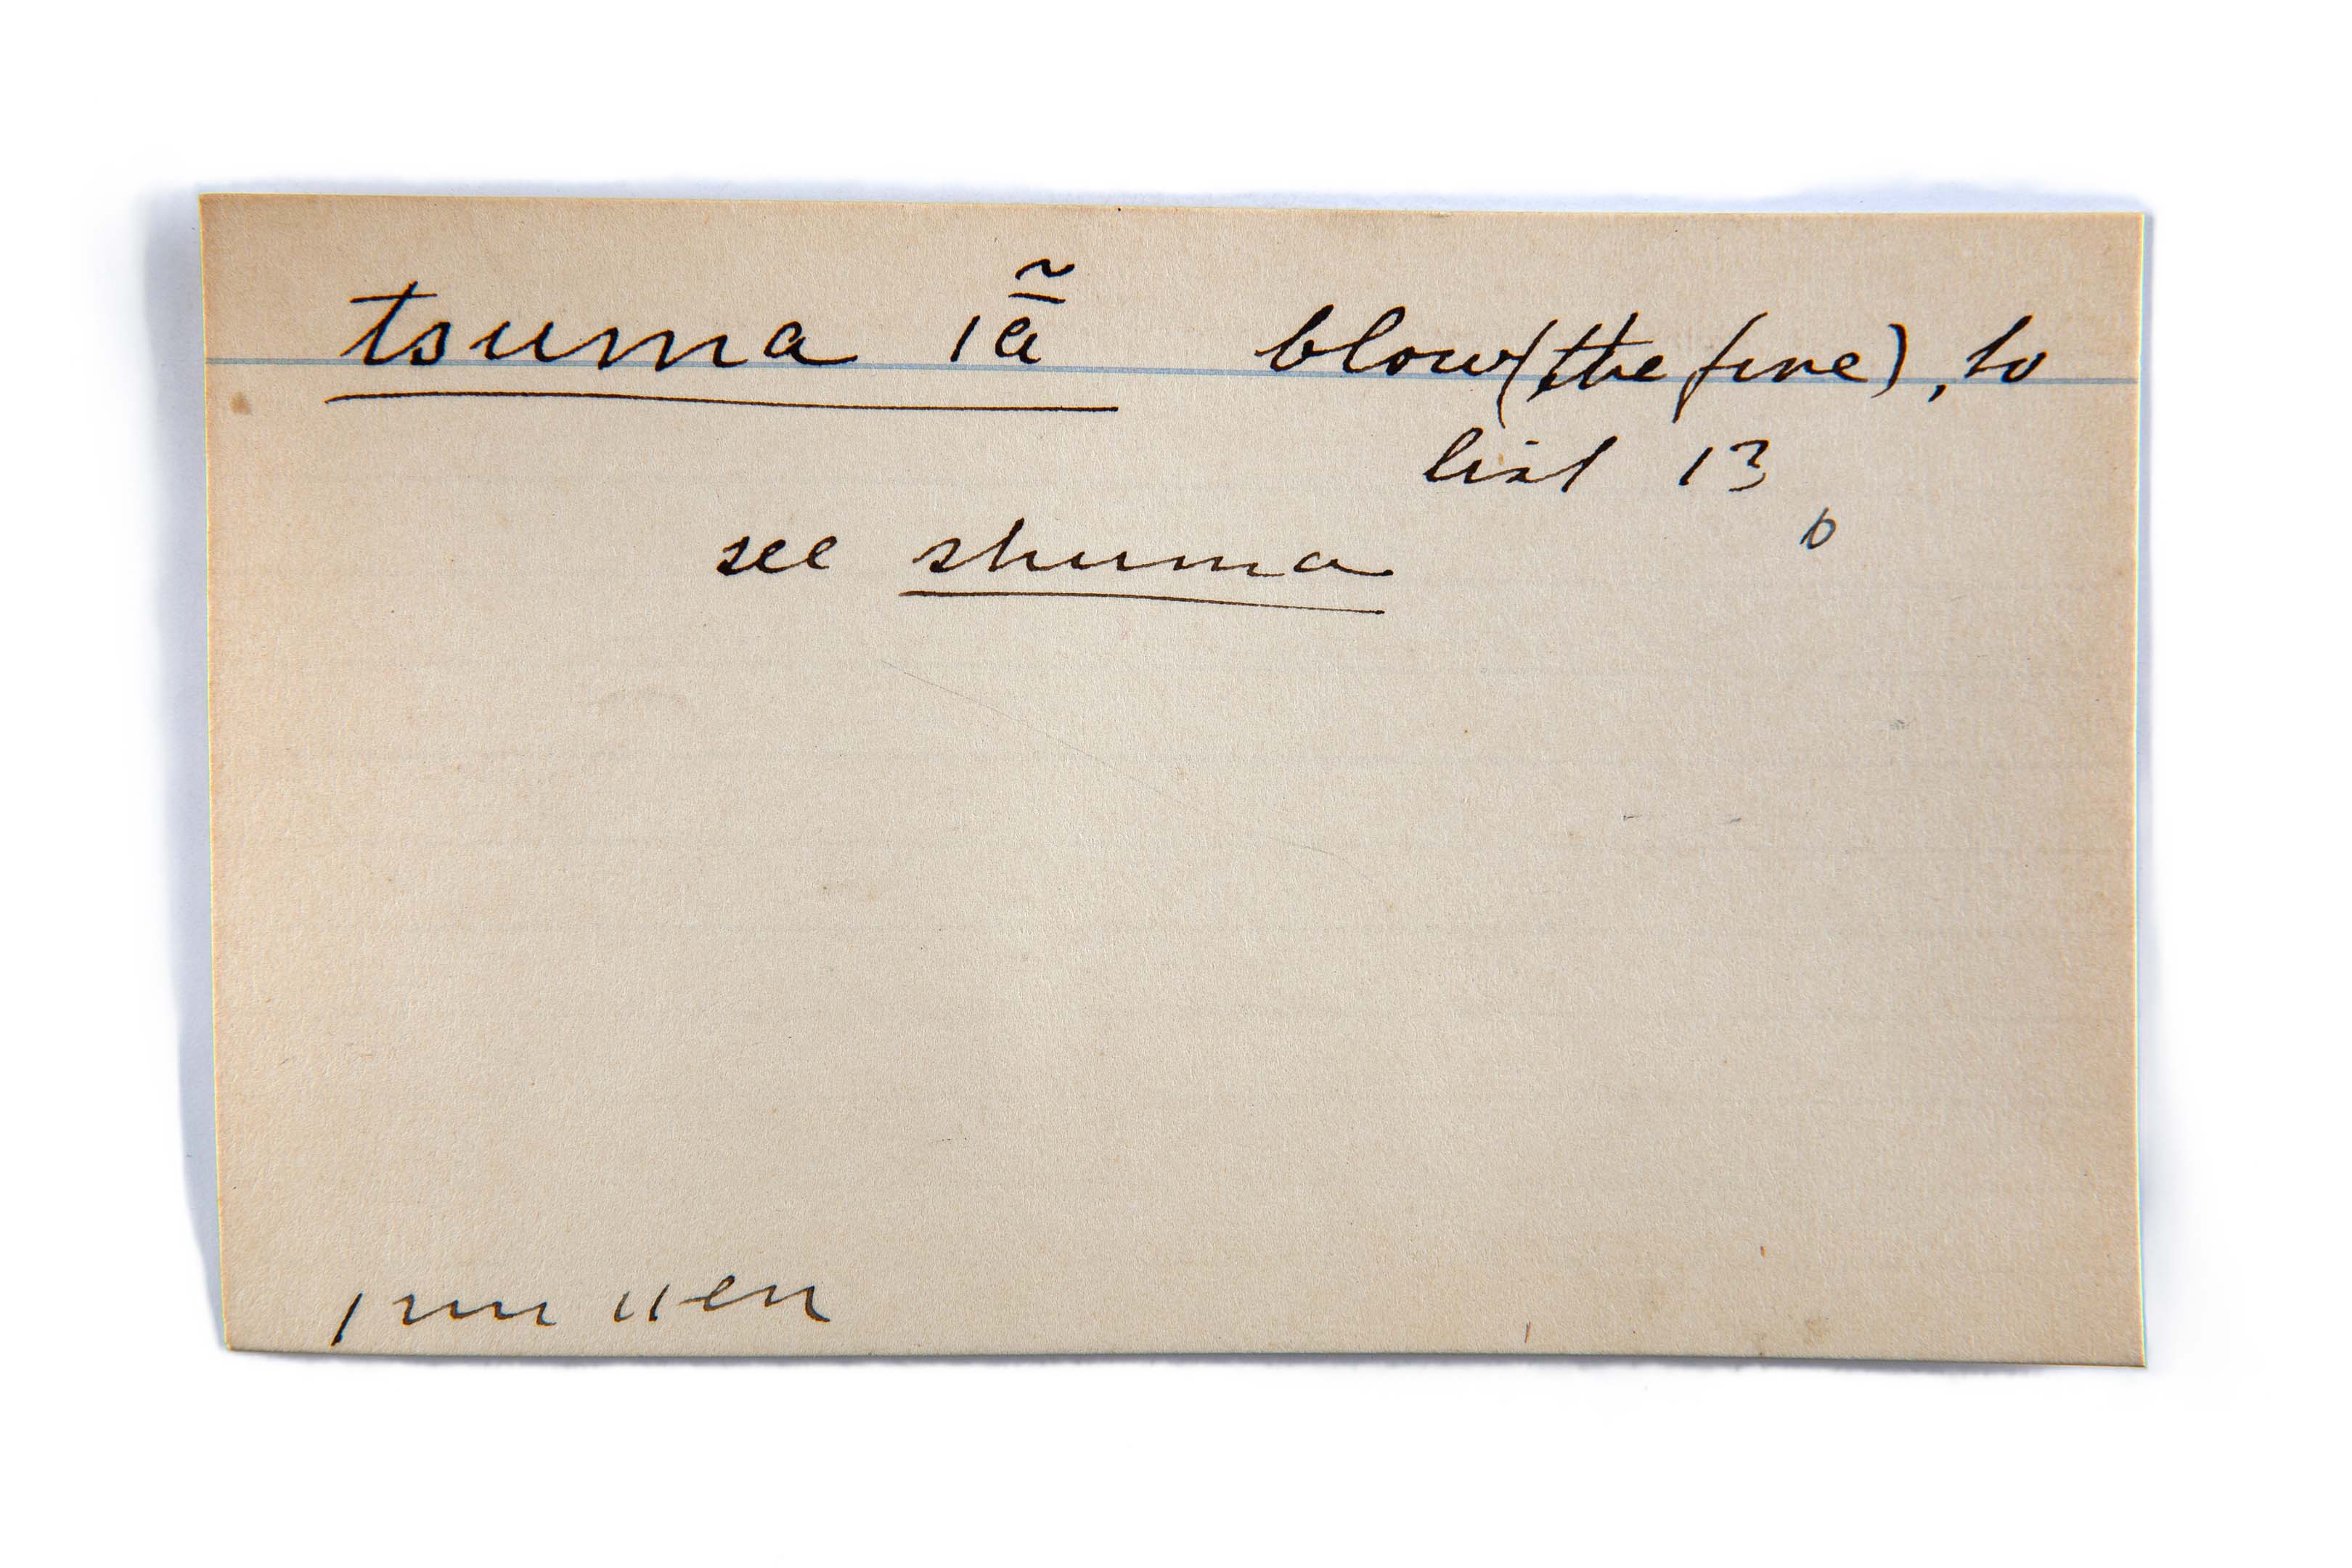 tsuma iã̄ blow (the fire), to
list 13
b
see shuma